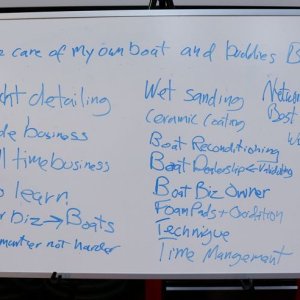 care of my own boat and buddies
detailing
business
time business
learn
Biz → Boats
not harder
Wet sanding
Ceramic Coating
Boat Reconditioning
Boat Dealership ← Validating
Boat Biz Owner
Foam Pads + Oxidation
Technique
Time Mangement
Best